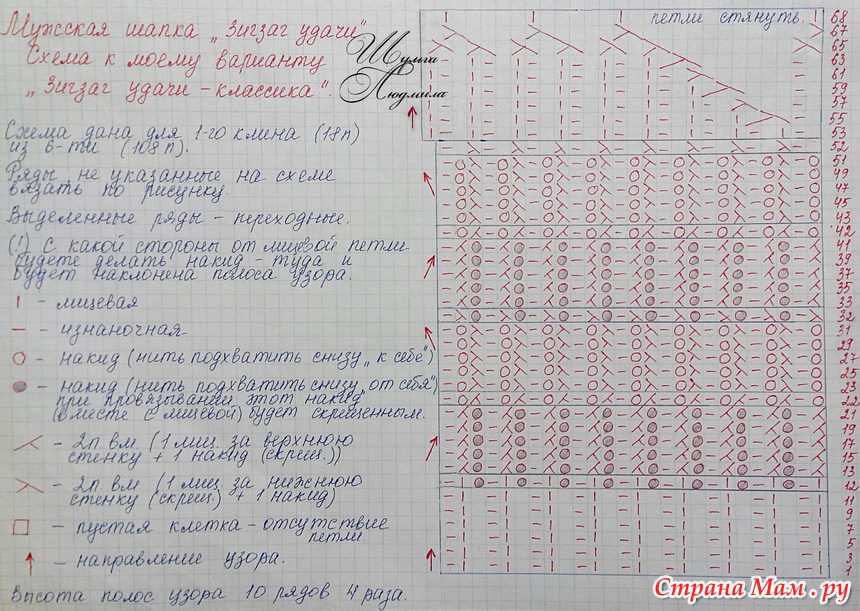 Мужская шапка „Зигзаг удачи"
Схема к моему варианту
„Зигзаг удачи - классика".
Шулма
Людмила
Схема дана для 1-го клина (18п)
из 6-ти (108п).
Ряды не указанные на схеме
вязать по рисунку.
Выделенные ряды - переходные.
(!) С какой стороны от лицевой петли
будете делать накид - туда и
будет наклонена полоса узора.
- лицевая
- изнаночная
- накид (нить подхватить снизу „к себе")
- накид (нить подхватить снизу „от себя")
при провязывании этот накид
(вместе с лицевой) будет скрещенным.
- 2п. вм. (1 лиц. за верхнюю
стенку + 1 накид (скрещ.))
- 2п. вм. (1 лиц. за нижнюю
стенку (скрещ.) + 1 накид)
- пустая клетка - отсутствие
петли.
- направление узора.
Высота полос узора 10 рядов 4 раза.
петли стянуть.
68
67
65
63
61
59
57
55
53
52
51
49
47
45
43
42
41
39
37
35
33
32
31
29
27
25
23
22
21
19
17
15
13
12
11
9
7
5
3
1
Страна Мам.ру